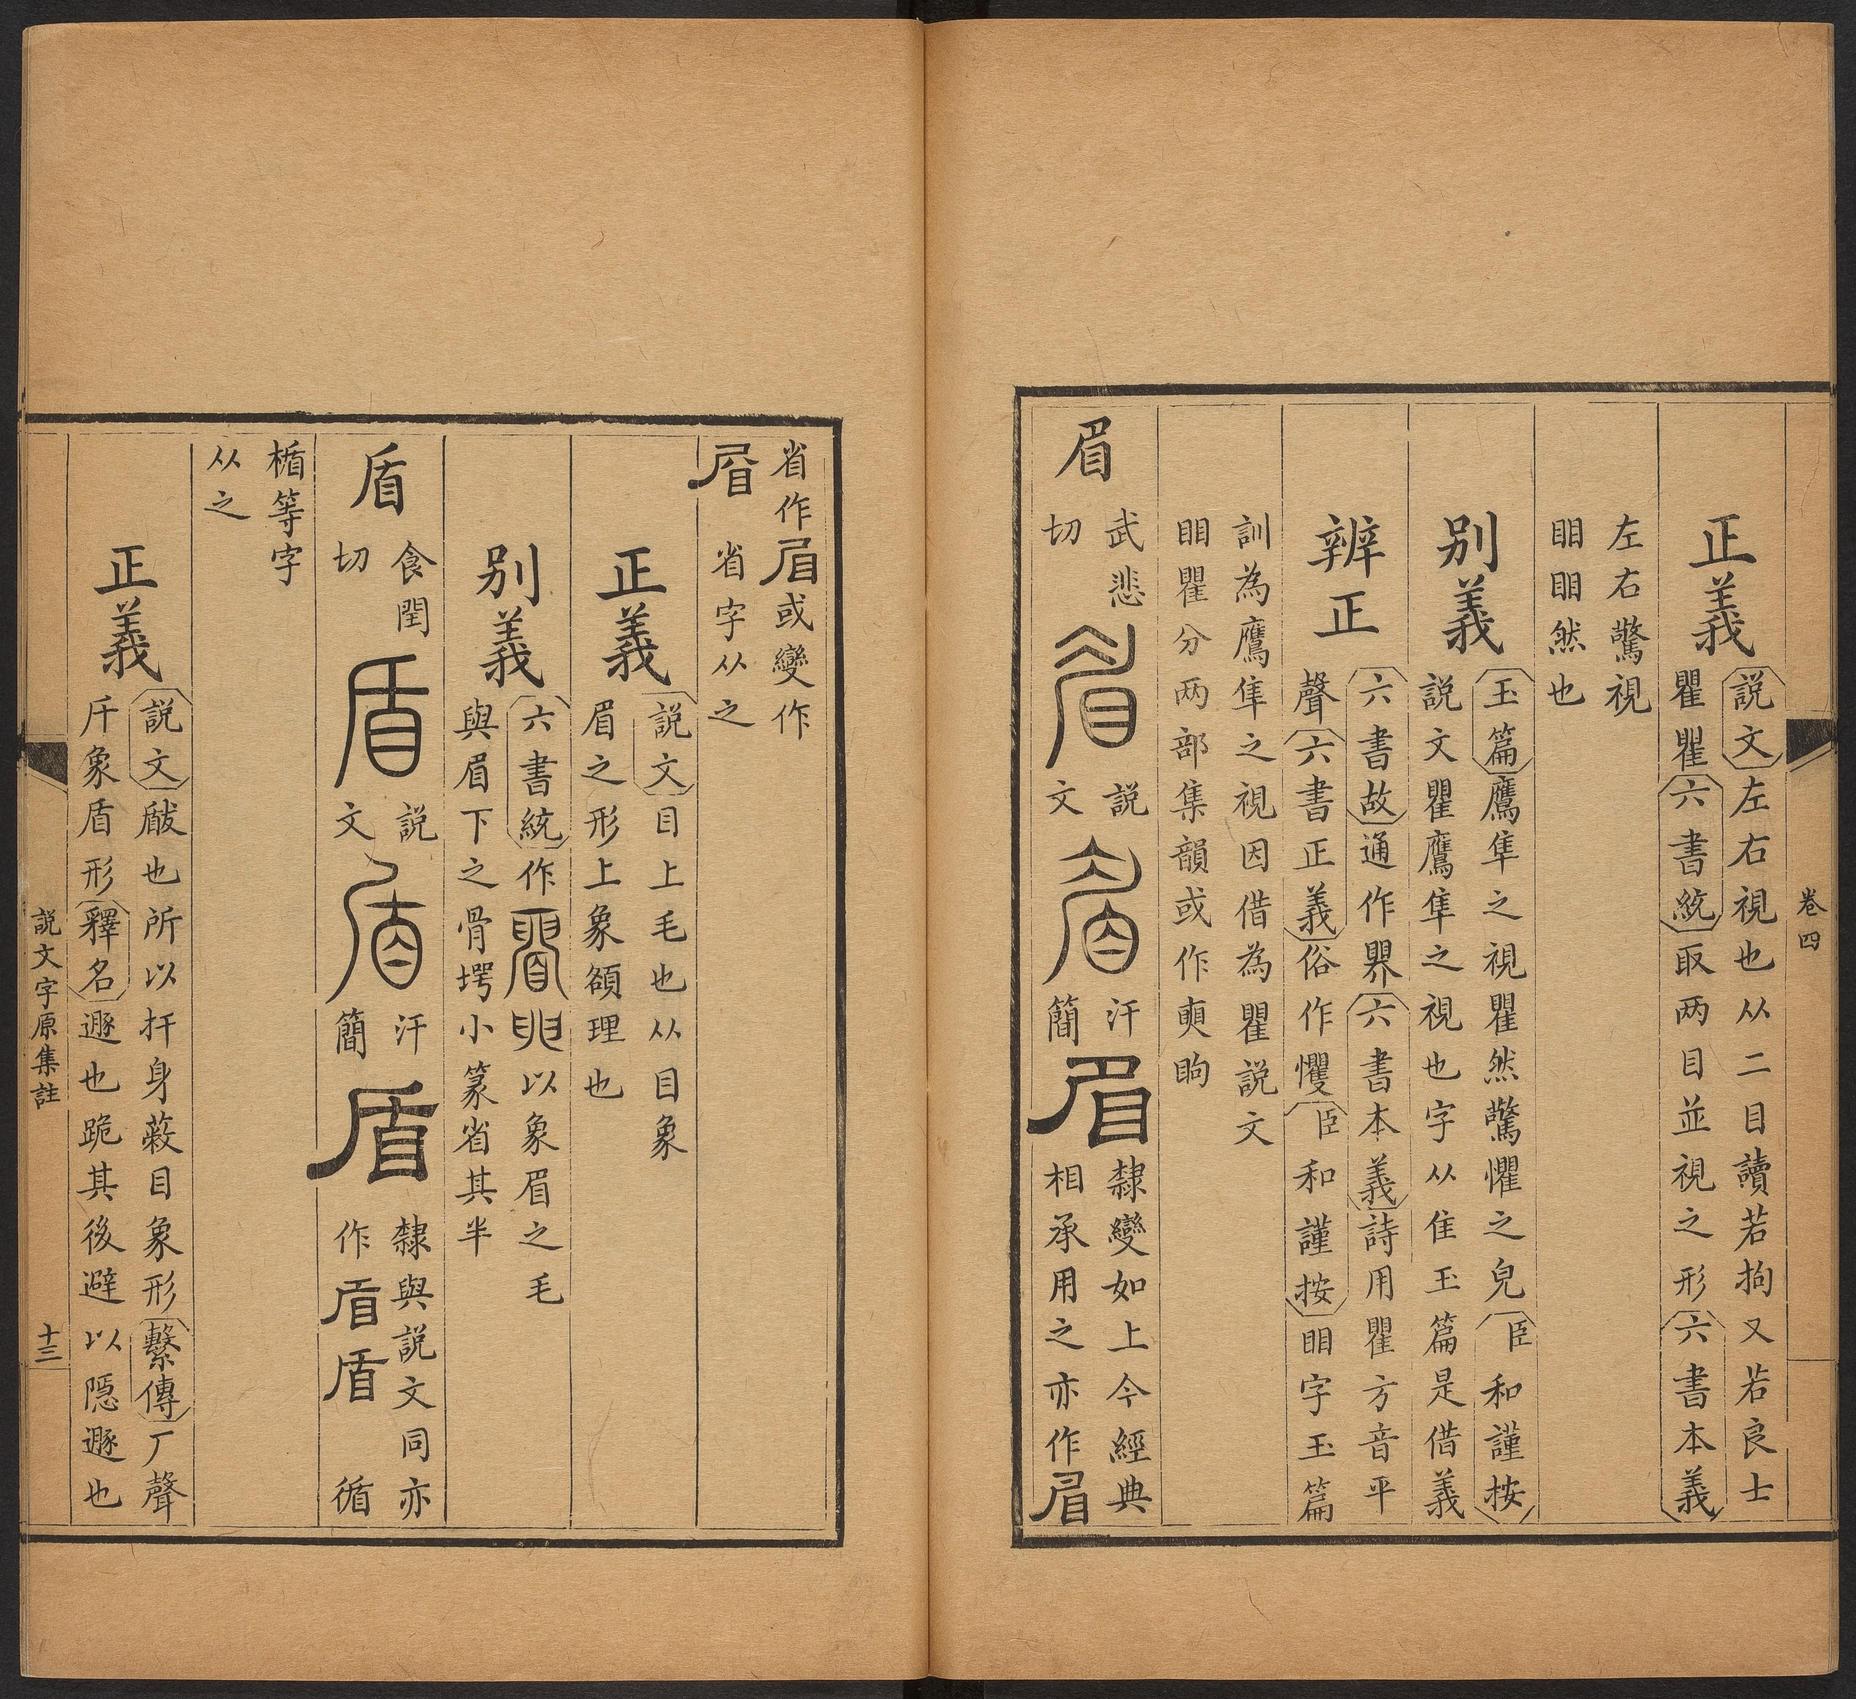 卷四
正義
說文左右視也从二目讀若拘又若良士
瞿瞿六書統取两目並視之形六書本義
左右驚視
䀠䀠然也
別義
玉篇鷹隼之視瞿然驚懼之皃臣和謹按
說文瞿鷹隼之視也字从隹玉篇是借義
辨正
六書故通作界六書本義詩用瞿方音平
聲六書正義俗作戄臣和謹按䀠字玉篇
訓為鷹隼之視因借為瞿說文
䀠瞿分两部集韻或作㒭眗
眉
武悲
切
說
文
汗
簡
眉
隸變如上今經典
相承用之亦作眉
省作眉或變作
眉省字从之
正義
說文目上毛也从目象
眉之形上象頟理也
別義
六書統作以象眉之毛
與眉下之骨堮小篆省其半
盾
食閏
切
盾
說
文
汗
簡
盾
隸與說文同亦
作盾盾循
楯等字
从之
正義
說文瞂也所以扞身蔽目象形繫傳厂聲
斤象盾形釋名遯也跪其後避以隠遯也
說文字原集註
十三